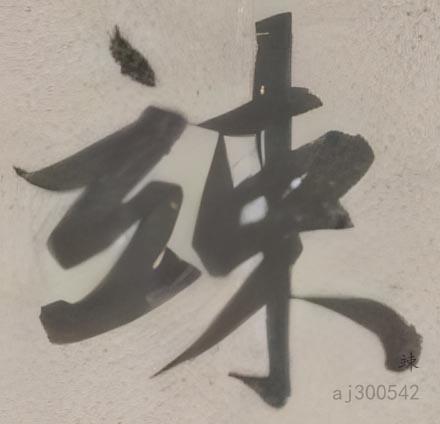 竦
竦
aj300542